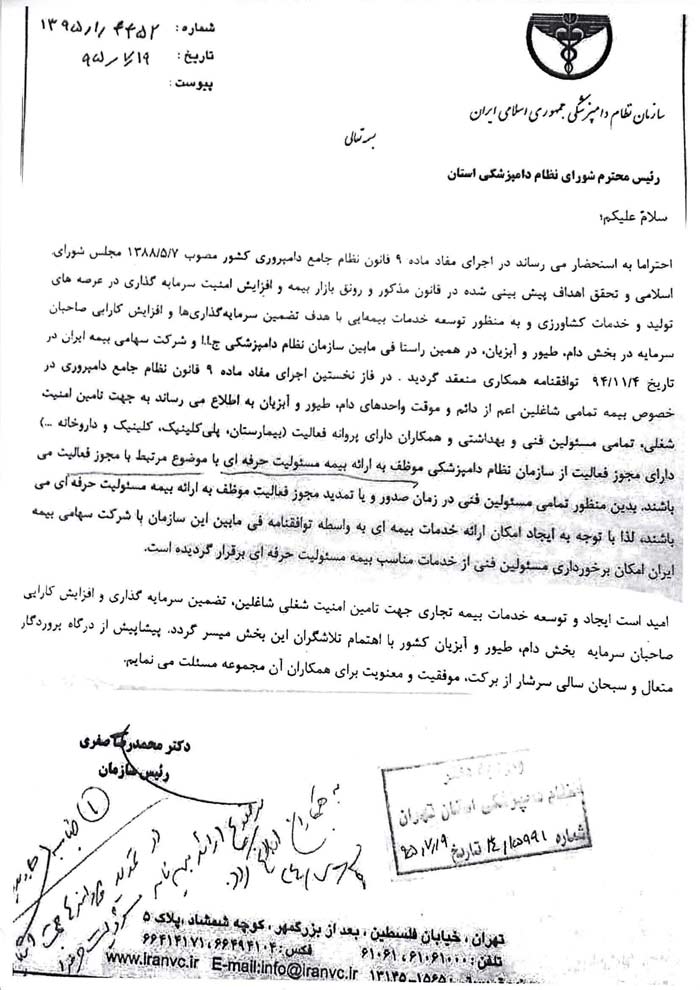 شماره: ۱۳۹۵/۱/۴۴۵۲
تاریخ: ۹۵/۷/۱۹
پیوست:
سازمان نظام دامپزشکی جمهوری اسلامی ایران
بسمه تعالی
رئیس محترم شورای نظام دامپزشکی استان
سلام علیکم؛
احتراما به استحضار می رساند در اجرای مفاد ماده ۹ قانون نظام جامع دامپروری کشور مصوب ۱۳۸۸/۵/۷ مجلس شورای
اسلامی و تحقق اهداف پیش بینی شده در قانون مذکور و رونق بازار بیمه و افزایش امنیت سرمایه گذاری در عرصه های
تولید و خدمات کشاورزی و به منظور توسعه خدمات بیمه‌ایی با هدف تضمین سرمایه‌گذاری‌ها و افزایش کارایی صاحبان
سرمایه در بخش دام، طیور و آبزیان، در همین راستا فی مابین سازمان نظام دامپزشکی ج.ا.ا و شرکت سهامی بیمه ایران در
تاریخ ۹۴/۱۱/۴ توافقنامه همکاری منعقد گردید . در فاز نخستین اجرای مفاد ماده ۹ قانون نظام جامع دامپروری در
خصوص بیمه تمامی شاغلین اعم از دائم و موقت واحدهای دام، طیور و آبزیان به اطلاع می رساند به جهت تامین امنیت
شغلی، تمامی مسئولین فنی و بهداشتی و همکاران دارای پروانه فعالیت (بیمارستان، پلی‌کلینیک، کلینیک و داروخانه ...)
دارای مجوز فعالیت از سازمان نظام دامپزشکی موظف به ارائه بیمه مسئولیت حرفه ای با موضوع مرتبط با مجوز فعالیت می
باشند. بدین منظور تمامی مسئولین فنی در زمان صدور و یا تمدید مجوز فعالیت موظف به ارائه بیمه مسئولیت حرفه ای می
باشند، لذا با توجه به ایجاد امکان ارائه خدمات بیمه ای به واسطه توافقنامه فی مابین این سازمان با شرکت سهامی بیمه
ایران امکان برخورداری مسئولین فنی از خدمات مناسب بیمه مسئولیت حرفه ای برقرار گردیده است.
امید است ایجاد و توسعه خدمات بیمه تجاری جهت تامین امنیت شغلی شاغلین، تضمین سرمایه گذاری و افزایش کارایی
صاحبان سرمایه بخش دام، طیور و آبزیان کشور با اهتمام تلاشگران این بخش میسر گردد. پیشاپیش از درگاه پروردگار
متعال و سبحان سالی سرشار از برکت، موفقیت و معنویت برای همکاران آن مجموعه مسئلت می نمایم.
دکتر محمدرضا صفری
رئیس سازمان
دفتر
نظام دامپزشکی استان تهران
شماره ۱۴/۱۵۹۹۱ تاریخ ۹۵/۷/۱۹
به همکاران ابلاغ
در تمدید
ارائه بیمه نامه مسئولیت
تهران ، خیابان فلسطین ، بعد از بزرگمهر ، کوچه شمشاد ،پلاک ۵
تلفن : ۶۱۰۶۱۰۰۰ ، ۶۱۰۶۱ فکس: ۶۶۴۹۴۱۰۴ ، ۶۶۴۱۴۱۷۱
۱۳۱۴۵-۱۵۶۵ E-mail:info@iranvc.ir www.iranvc.ir